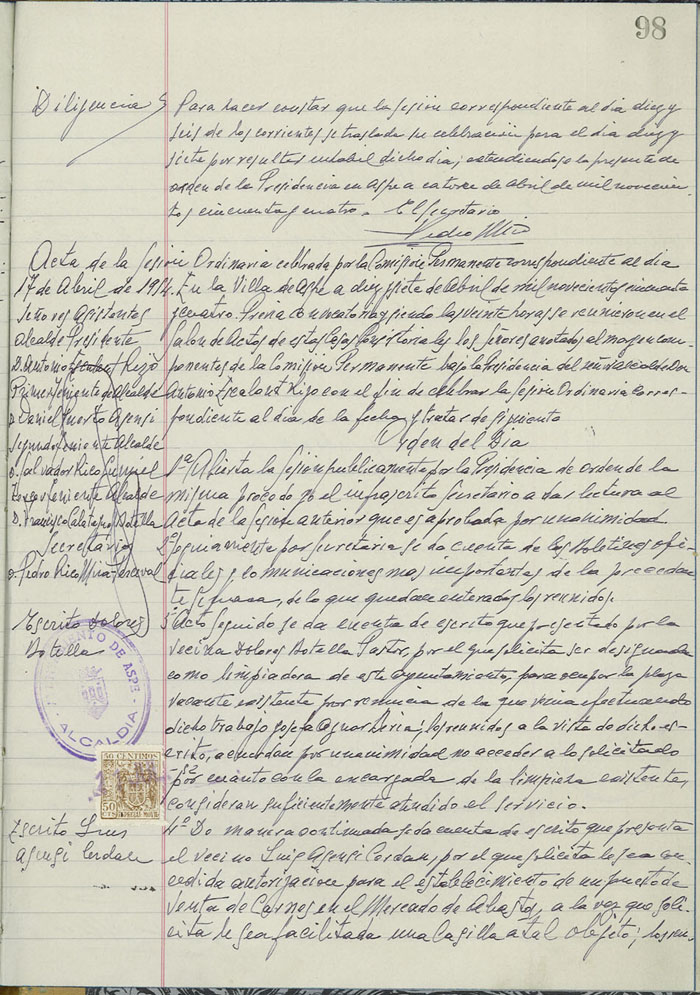 98
Diligencia
Para hacer constar que la sesión correspondiente al dia diez y
seis de los corrientes se traslada su celebración para el dia diez y
siete por resultar inhabil dicho dia; extendiendose la presente de
orden de la Presidencia en Aspe a catorce de Abril de mil novecien-
tos cincuenta y cuatro. El Secretario
Pedro Mira
Acta de la Sesión Ordinaria celebrada por la Comisión Permanente correspondiente al dia
17 de Abril de 1954. En la Villa de Aspe a diez y siete de Abril de mil novecientos cincuenta
Señores Asistentes
y cuatro. Previa convocatoria y siendo las veinte horas se reunieron en el
Alcalde Presidente
Salon de Actos de estas Casas Consistoriales los señores anotados al margen com-
D. Antonio Escalant Rizo
ponentes de la Comisión Permanente bajo la Presidencia del señor Alcalde Don
Primer Teniente de Alcalde
Antonio Escalant Rizo con el fin de celebrar la Sesión Ordinaria corres-
D. Daniel Puerto Asensi
pondiente al dia de la fecha y tratar el siguiente
Segundo Teniente Alcalde
Orden del Dia
D. Salvador Rico
1º Abierta la Sesión publicamente por la Presidencia de orden de la
Tercer Teniente Alcalde
misma procedo yo el infrascrito Secretario a dar lectura al
D. Francisco Calatayud Botella
Acta de la Sesión anterior que es aprobada por unanimidad
Secretario
2º Seguidamente por Secretaria se da cuenta de los Boletines ofi-
D. Pedro Rico Mira Perceval
ciales y comunicaciones mas importantes de la preceden-
te semana, de lo que quedan enterados los reunidos.
Escrito Dolores
3º Acto seguido se da cuenta de escrito que presentado por la
Botella
vecina Dolores Botella Pastor, por el que solicita ser designada
como limpiadora de este ayuntamiento, para ocupar la plaza
vacante existente por renuncia de la que venia efectuando
dicho trabajo; los reunidos a la vista de dicho es-
crito, acuerdan por unanimidad no acceder a lo solicitado
por cuanto con la encargada de la limpieza existente,
consideran suficientemente atendido el servicio.
AYUNTAMIENTO DE ASPE
ALCALDIA
50 CENTIMOS
50 CTS
ESPECIAL MOVIL
Escrito Luis
4º De manera continuada se da cuenta de escrito que presenta
Asensi Cerdan
el vecino Luis Asensi Cerdan, por el que solicita le sea con-
cedida autorización para el establecimiento de un puesto de
Venta de Carnes en el Mercado de Abastos, a la vez que soli-
cita le sea facilitada una Casilla a tal objeto; los reu-